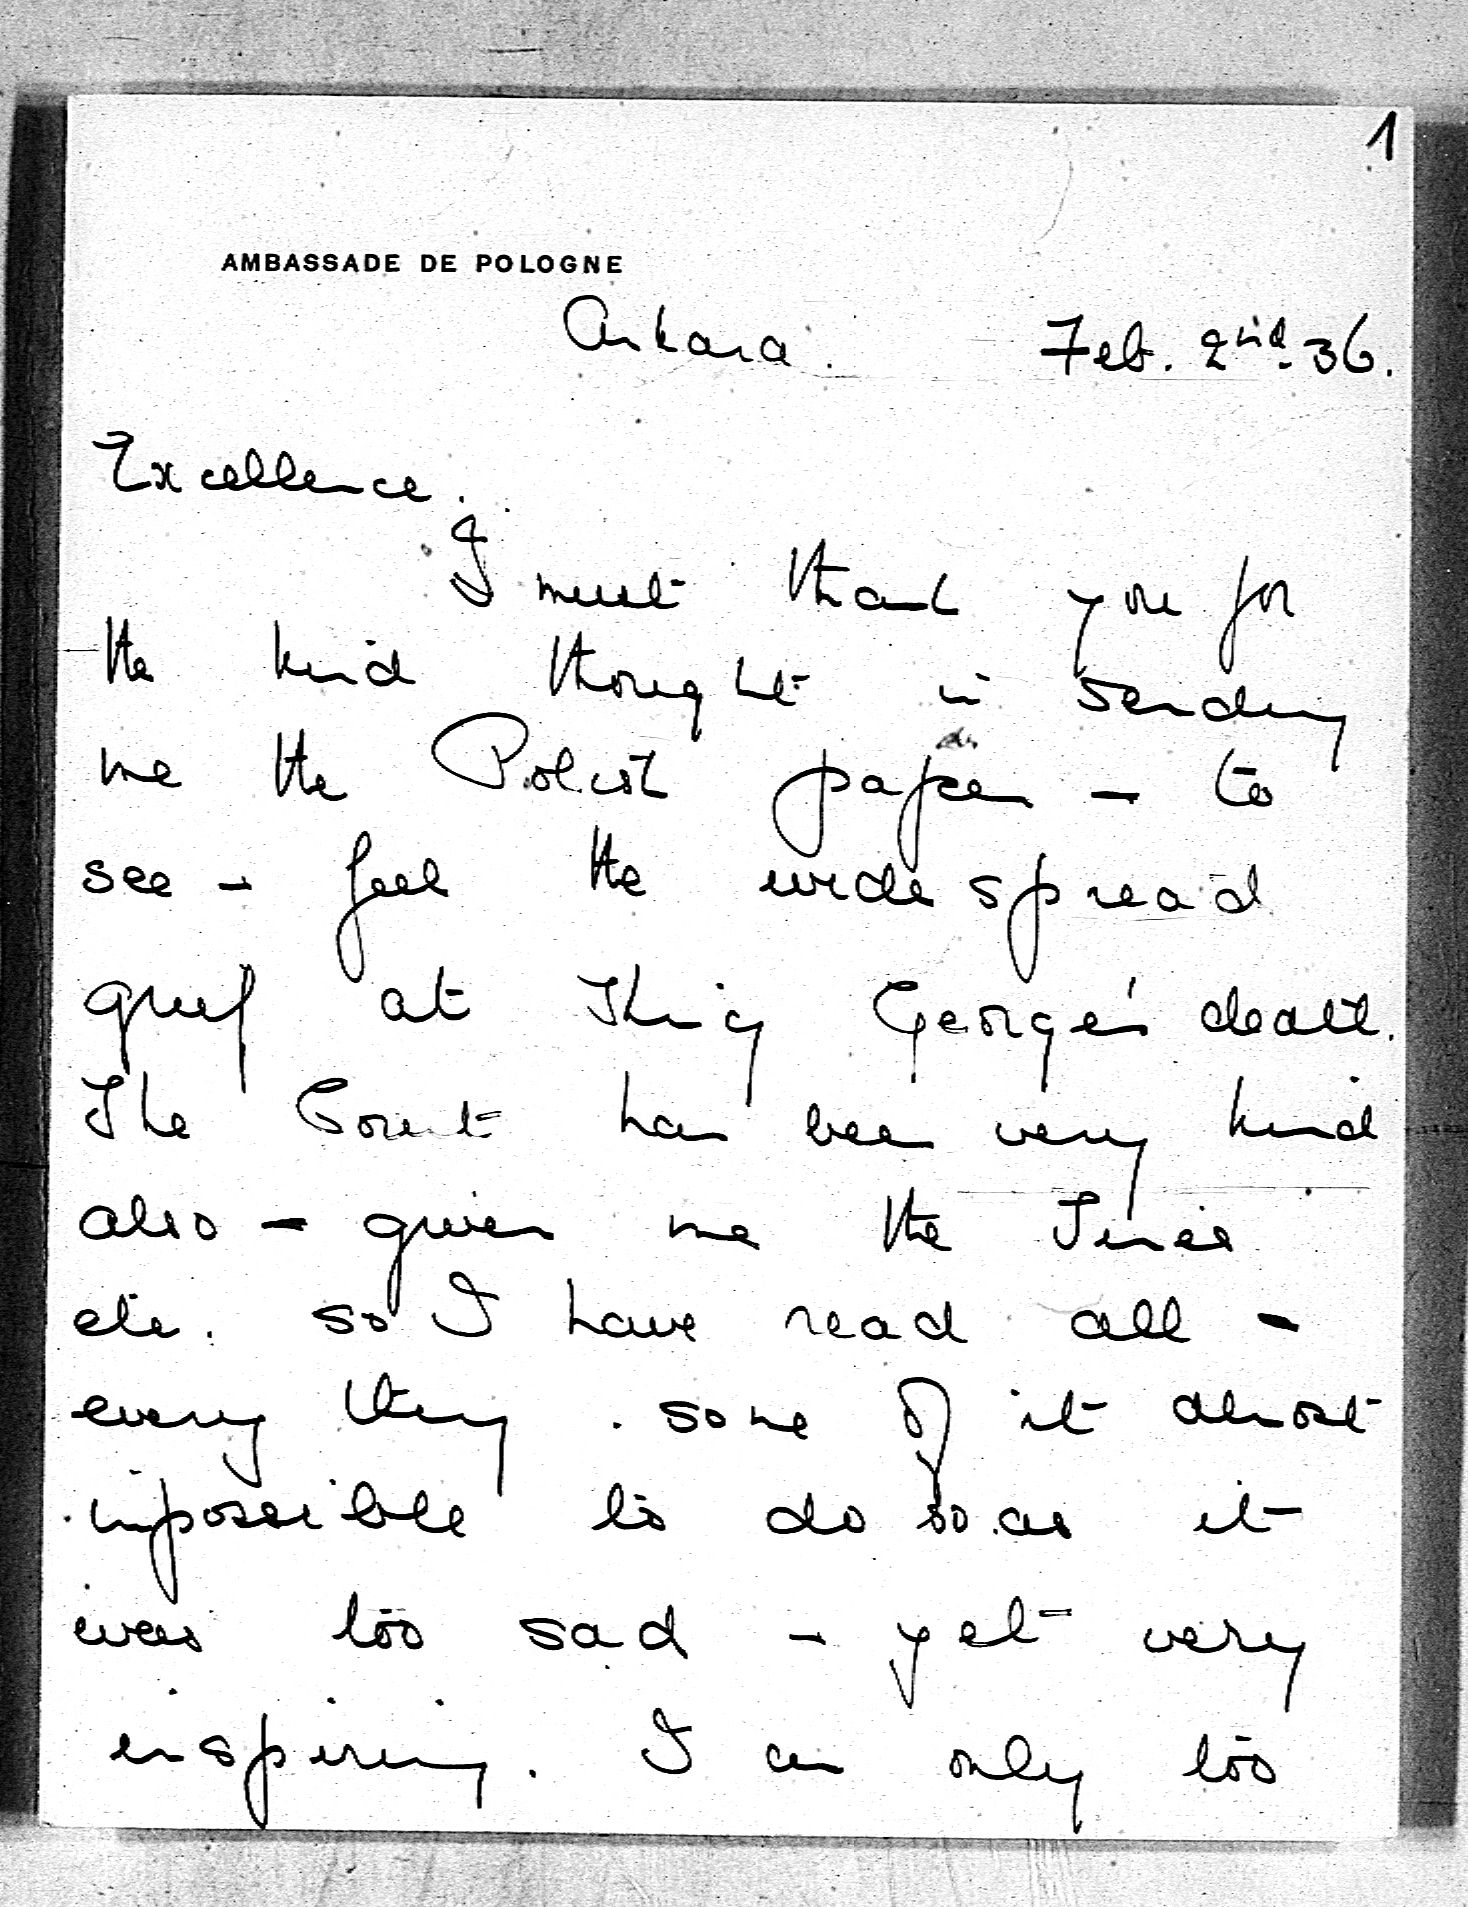 1
AMBASSADE DE POLOGNE
Ankara. Feb. 2nd 36.
Excellence.
I must thank you for
the kind thought in sending
me the Polish paper - to
see - feel the wide spread
grief at King George's death.
The Count has been very kind
also - given me the Times
etc. so I have read all -
every thing. some of it almost
impossible to do so as it
was too sad - yet very
inspiring. I am only too